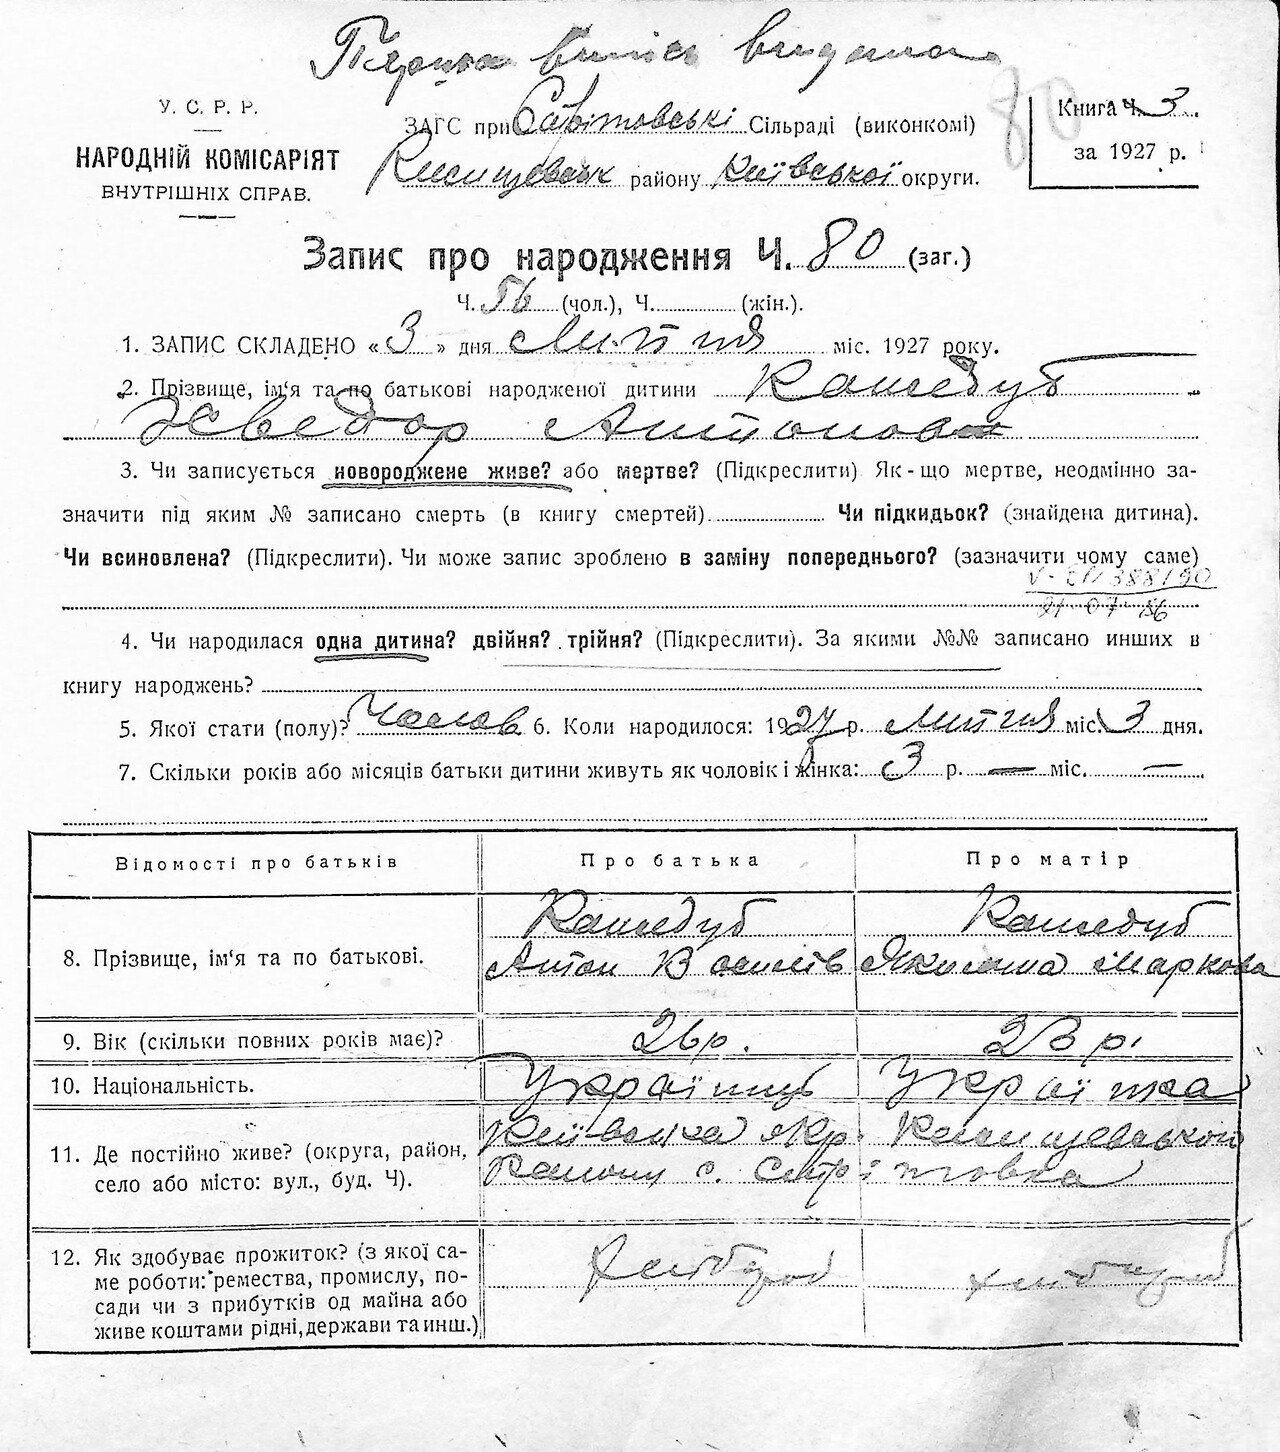 Перша випись видана
У. С. Р. Р.
НАРОДНІЙ КОМІСАРІЯТ
ВНУТРІШНІХ СПРАВ.
ЗАГС при Сільраді (виконкомі)
району Київської округи.
80
Книга Ч. 3
за 1927 р.
Запис про народження Ч. 80 (заг.)
Ч. 56 (чол.), Ч. (жін.).
1. ЗАПИС СКЛАДЕНО « 3 » дня Липня міс. 1927 року.
2. Прізвище, ім‘я та по батькові народженої дитини Кашедуб
Хведор Антонов
3. Чи записується новороджене живе? або мертве? (Підкреслити) Як-що мертве, неодмінно за-
значити під яким № записано смерть (в книгу смертей) Чи підкидьок? (знайдена дитина).
Чи всиновлена? (Підкреслити). Чи може запис зроблено в заміну попереднього? (зазначити чому саме)
388190
21-07-86
4. Чи народилася одна дитина? двійня? трійня? (Підкреслити). За якими №№ записано инших в
книгу народжень?
5. Якої стати (полу)? Чолов 6. Коли народилося: 1927 р. Липня міс. 3 дня.
7. Скільки років або місяців батьки дитини живуть як чоловік і жінка: 3 р. — міс. —
Відомості про батьків Про батька Про матір
8. Прізвище, ім‘я та по батькові. Кашедуб Антон Василів Кашедуб Якилина Маркова
9. Вік (скільки повних років має)? 26 р. 23 р.
10. Національність. Українць Українка
11. Де постійно живе? (округа, район,
село або місто: вул., буд. Ч). Київська окр.
району с.
12. Як здобуває прожиток? (з якої са-
ме роботи: ремества, промислу, по-
сади чи з прибутків од майна або
живе коштами рідні, держави та инш.)
хлібороб хлібороб